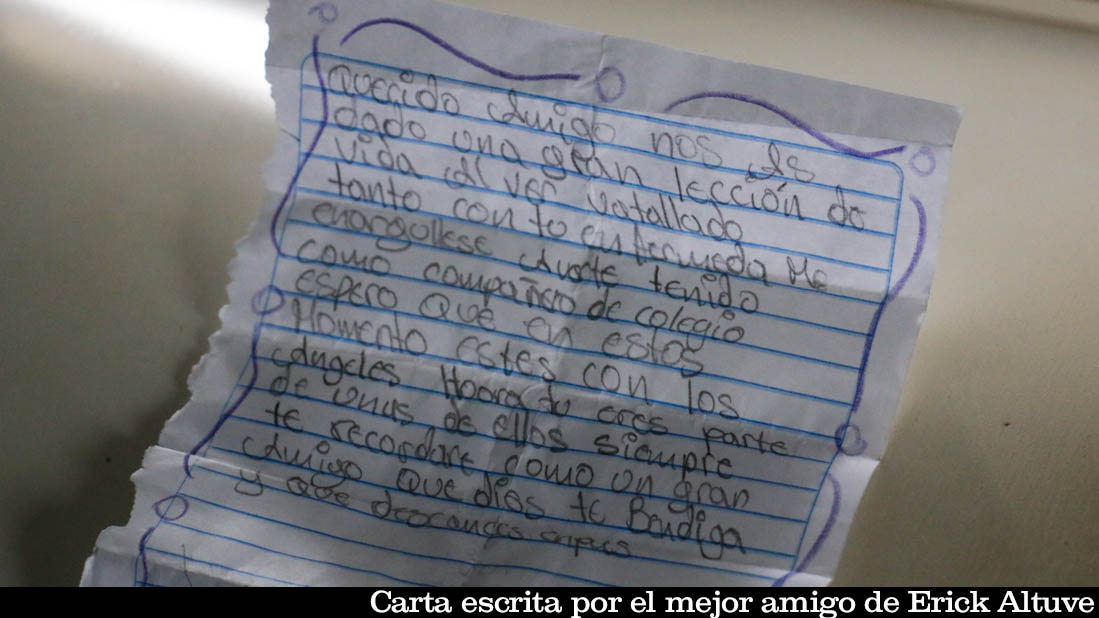 Querido Amigo nos As
dado una gran lección de
vida Al ver vatallado
tanto con tu enfermeda Me
enorgullese Averte tenido
como compañero de colegio
espero Que en estos
Momento estes con los
Angeles Hoora tu eres parte
de unus de ellos siempre
te recordare como un gran
Amigo Que dios te Bendiga
y que
Carta escrita por el mejor amigo de Erick Altuve